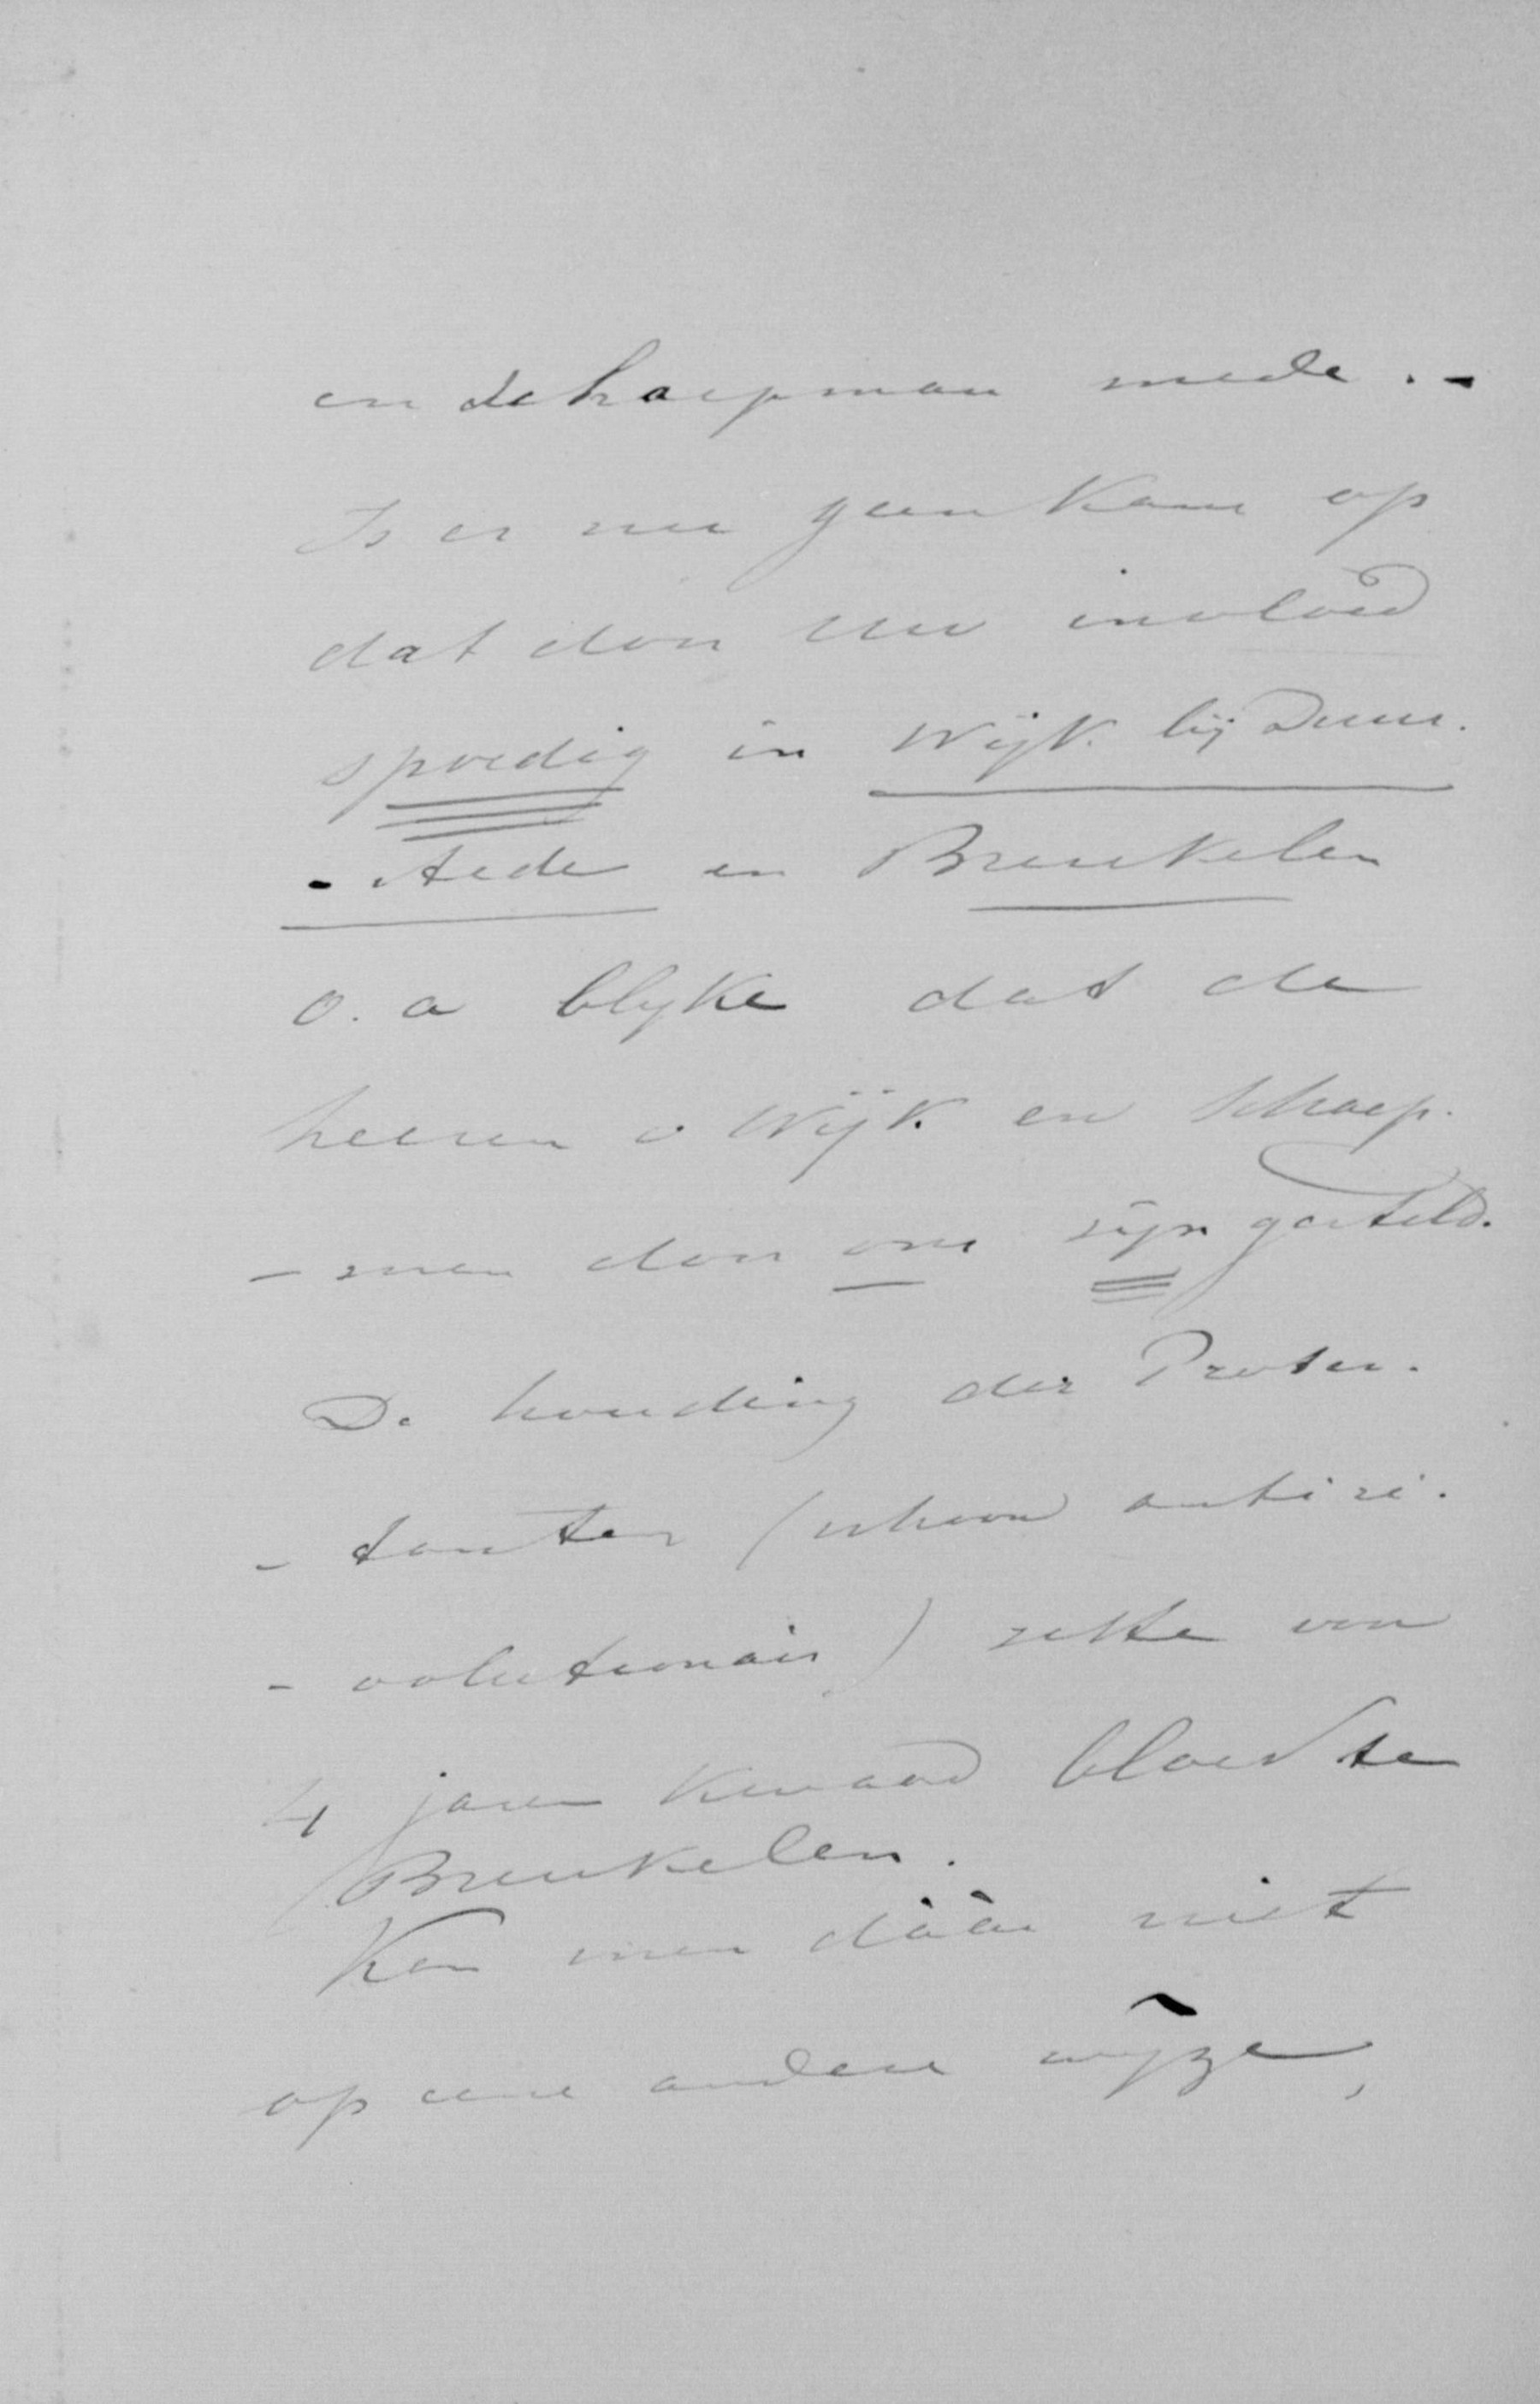 en Schaepman mede. -
Is er nu geen Kans op
dat door uw invloed
spoedig in Wijk bij Duur.
- stede en Breukelen
o. a blijke dat de
heeren v Wijk en Schaep.
- man door ons zijn gesteld.
De houding der Protes.
- tanten (schoon antire.
- volutionair) zette voor
4 jaren kwaad bloed te
Breukelen.
Kan men dààr niet
op eene andere wijze,